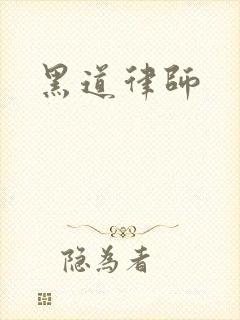 黑道律師
隐為者